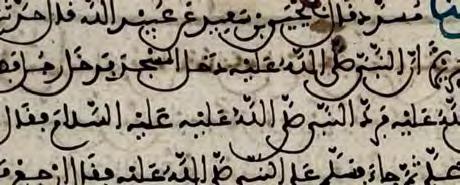 مسدد قال نا يحيى بن سعيد عن عبيد الله قال حد
ان النبي صلى الله عليه دخل المسجد فدخل رجل فصـ
الله عليه فرد النبي صلى الله عليه عليه السلام فقال
صلى ثم جاء فسلم على النبي صلى الله عليه فقال ارجع فـ